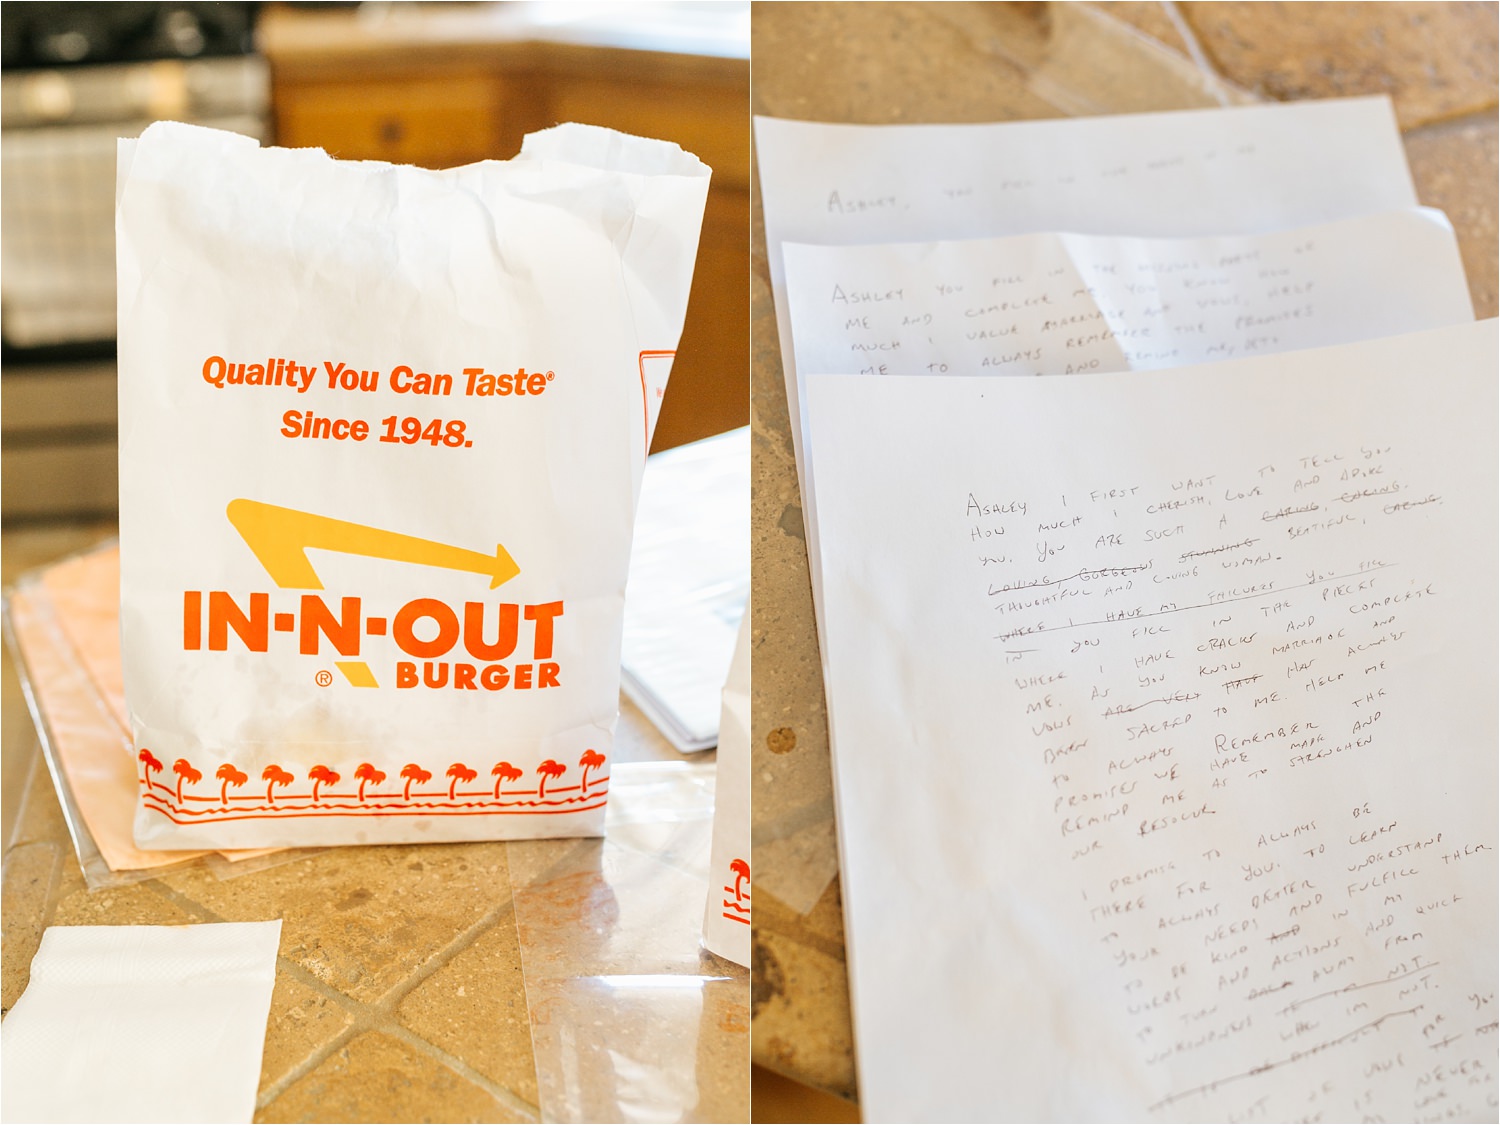 Quality You Can Taste®
Since 1948.
IN-N-OUT
® BURGER
ASHLEY, YOU FILL IN THE
ASHLEY YOU FILL IN THE MISSING PARTS OF
ME AND COMPLETE ME, YOU KNOW HOW
MUCH I VALUE MARRIAGE AND VOWS, HELP
ME TO ALWAYS REMEMBER THE PROMISES
AND REMIND ME,
ASHLEY I FIRST WANT TO TELL YOU
HOW MUCH I CHERISH, LOVE AND ADORE
YOU. YOU ARE SUCH A CARING, CARING,
LOVING, GORGEOUS STUNNING BEATIFUL, CARING,
THOUGHTFUL AND LOVING WOMAN.
WHERE I HAVE MY FAILURES YOU FILL
IN YOU FILL IN THE PIECES
WHERE I HAVE CRACKS AND COMPLETE
ME. AS YOU KNOW MARRIAGE AND
VOWS ARE VERY HAVE HAS ALWAYS
BEEN SACRED TO ME. HELP ME
TO ALWAYS REMEMBER THE
PROMISES WE HAVE MADE AND
REMIND ME AS TO STRENGHEN
OUR RESOLVE
I PROMISE TO ALWAYS BE
THERE FOR YOU. TO LEARN
TO ALWAYS BETTER UNDERSTAND
YOUR NEEDS AND FULFILL THEM
TO BE KIND AND IN MY
WORDS AND ACTIONS AND QUICK
TO TURN BACK AWAY FROM
UNKINDNESS IF I'M NOT
WHEN IM NOT.
IT IS DIFFICULT TO FOR YOU
LIST OF VOWS
IS NEVER
LOVE